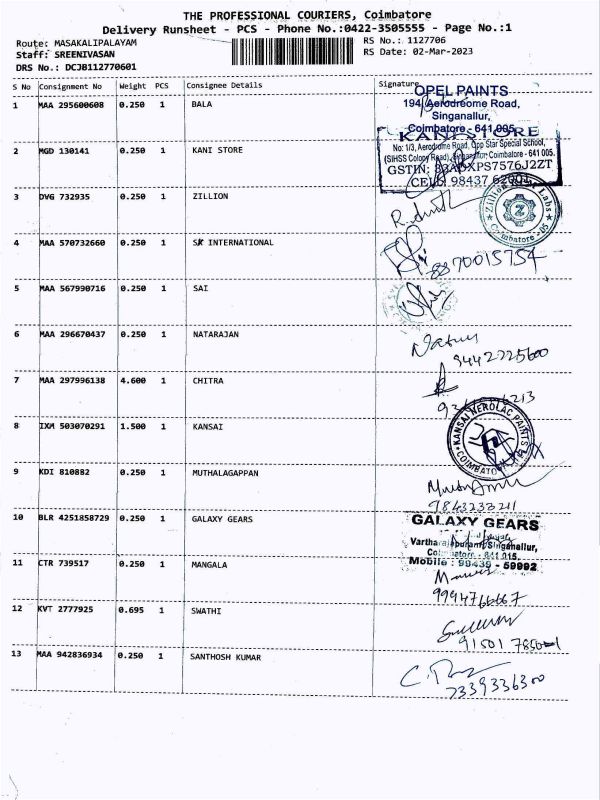 THE PROFESSIONAL COURIERS, Coimbatore
Delivery Runsheet - PCS - Phone No.:0422-3505555 - Page No.:1
Route: MASAKALIPALAYAM RS No.: 1127706
Staff: SREENIVASAN RS Date: 02-Mar-2023
DRS No.: DCJB112770601
S No Consignment No Weight PCS Consignee Details Signature
1 MAA 295600608 0.250 1 BALA
OPEL PAINTS
194, Aerodreome Road,
Singanallur,
Coimbatore - 641 005
2 MGD 130141 0.250 1 KANI STORE
KANI STORE
No: 1/3, Aerodrome Road, Opp Star Special School,
(SIHSS Colony Road), Singanallur, Coimbatore - 641 005.
GSTIN: 33 XPS7576J2ZT
CELL: 98437 62001
3 DVG 732935 0.250 1 ZILLION
Zillion Labs
Coimbatore - 05
4 MAA 570732660 0.250 1 SK INTERNATIONAL
8870015754
5 MAA 567990716 0.250 1 SAI
6 MAA 296670437 0.250 1 NATARAJAN
9442225600
7 MAA 297996138 4.600 1 CHITRA
8 IXM 503070291 1.500 1 KANSAI
KANSAI NEROLAC PAINTS
COIMBATORE
9 KDI 810882 0.250 1 MUTHALAGAPPAN
7843233211
10 BLR 4251858729 0.250 1 GALAXY GEARS
GALAXY GEARS
Vartharajapuram, Singanallur,
Coimbatore - 641 015.
Mobile : 99439 - 59992
11 CTR 739517 0.250 1 MANGALA
9994766667
12 KVT 2777925 0.695 1 SWATHI
13 MAA 942836934 0.250 1 SANTHOSH KUMAR
7339336300